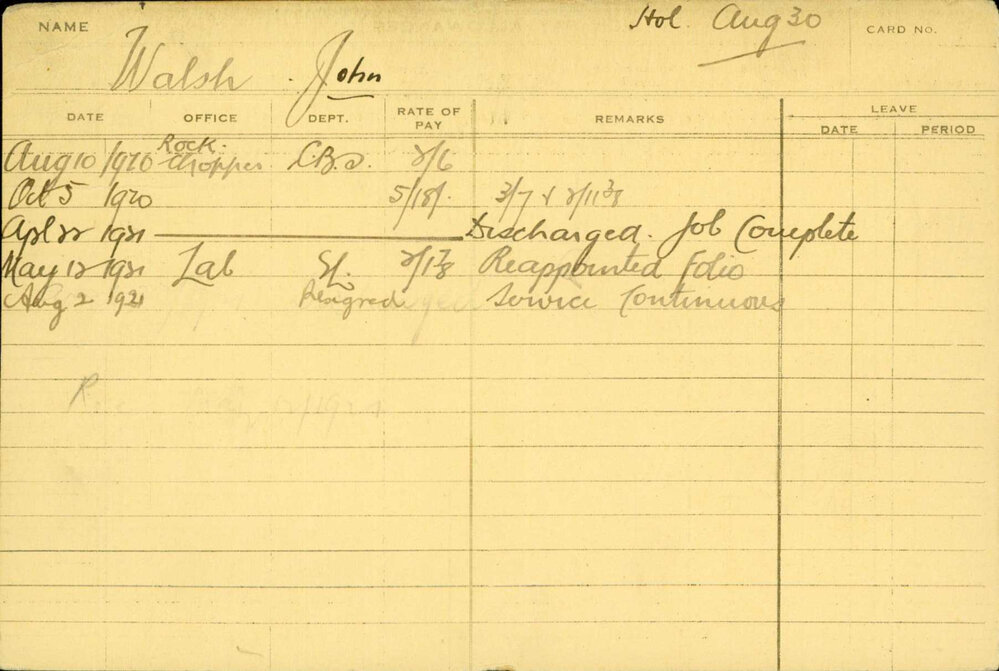 Hol. Aug 30
NAME
CARD NO.
Walsh John
DATE OFFICE DEPT. RATE OF PAY REMARKS LEAVE
DATE PERIOD
Aug 10 1920 Rock Chopper C.B.S. 2/6
Oct 5 1920 5/18/- 3/7 & 2/11 3/8
Apl 22 1921 Discharged. Job Complete
May 12 1921 Lab 2/1 7/8 Reappointed Folio
Aug 2 1921 Resigned Service Continuous